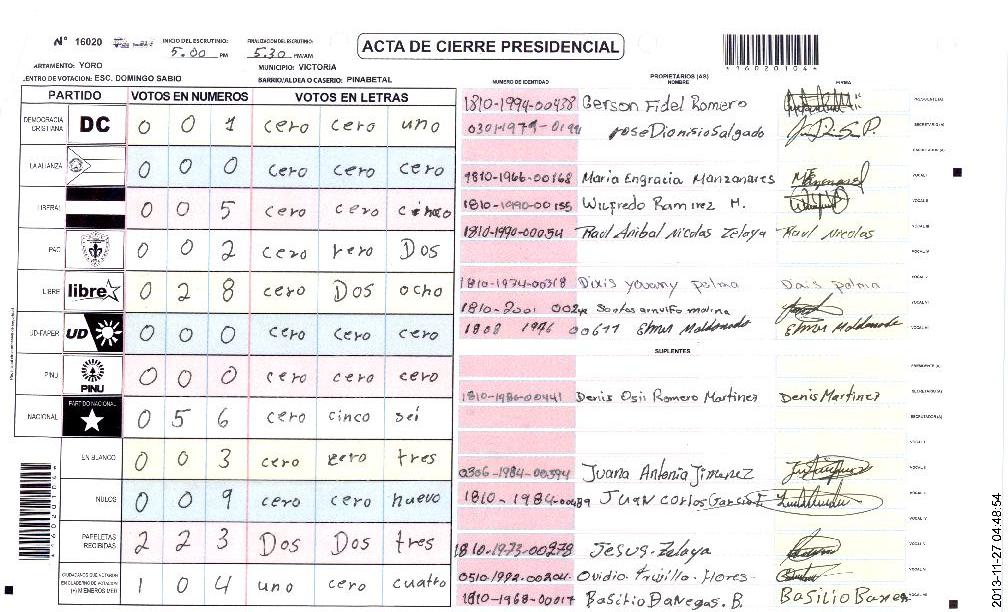 N° 16020
INICIO DEL ESCRUTINIO: 5.00 PM
FINALIZACION DEL ESCRUTINIO: 5.30 PM/AM
ACTA DE CIERRE PRESIDENCIAL
ARTAMENTO: YORO
MUNICIPIO: VICTORIA
ENTRO DE VOTACION: ESC. DOMINGO SABIO
BARRIO/ALDEA O CASERIO: PINABETAL
PARTIDO VOTOS EN NUMEROS VOTOS EN LETRAS
DEMOCRACIA CRISTIANA DC 0 0 1 cero cero uno
LA ALIANZA 0 0 0 cero cero cero
LIBERAL 0 0 5 cero cero cinco
PAC 0 0 2 cero cero Dos
LIBRE libre 0 2 8 cero Dos ocho
UD-FAPER UD 0 0 0 cero cero cero
PINU PINU 0 0 0 cero cero cero
NACIONAL PARTIDO NACIONAL 0 5 6 cero cinco sei
EN BLANCO 0 0 3 cero cero tres
NULOS 0 0 9 cero cero nuevo
PAPELETAS RECIBIDAS 2 2 3 Dos Dos tres
CIUDADANOS QUE VOTARON EN CUADERNO DE VOTACION (+) MIEMBROS MER 1 0 4 uno cero cuatro
NUMERO DE IDENTIDAD PROPIETARIOS (AS) NOMBRE FIRMA
1810-1994-00438 Gerson Fidel Romero PRESIDENTE (A)
0301-1979- Jose Dionisio Salgado SECRETARIO (A)
ESCRUTADOR (A)
1810-1966-00168 Maria Engracia Manzanares VOCAL I
1810-1990-00155 Wilfredo Ramirez M. VOCAL II
1810-1990-00054 Raul Anibal Nicolas Zelaya Raul Nicolas VOCAL III
VOCAL IV
1810-1974-00318 Dixis yovany palma palma VOCAL V
1810-2001 Santos arnulfo molina VOCAL VI
1808 1976 00611 Elmer Maldonado Elmer Maldonado VOCAL VII
SUPLENTES
PRESIDENTE (A)
1810-1986-00441 Denis Osii Romero Martinez Denis Martinez SECRETARIO (A)
ESCRUTADOR (A)
VOCAL I
0306-1984-00394 Juana Antonia Jimenez VOCAL II
1810-1984-00489 Juan Carlos Garcia VOCAL III
VOCAL IV
1810-1973-00278 Jesus Zelaya VOCAL V
0510-1992-00204 Ovidio Trujillo Flores VOCAL VI
1810-1968-00017 Basilio Banegas. B. Basilio VOCAL VII
2013-11-27 04:48:54